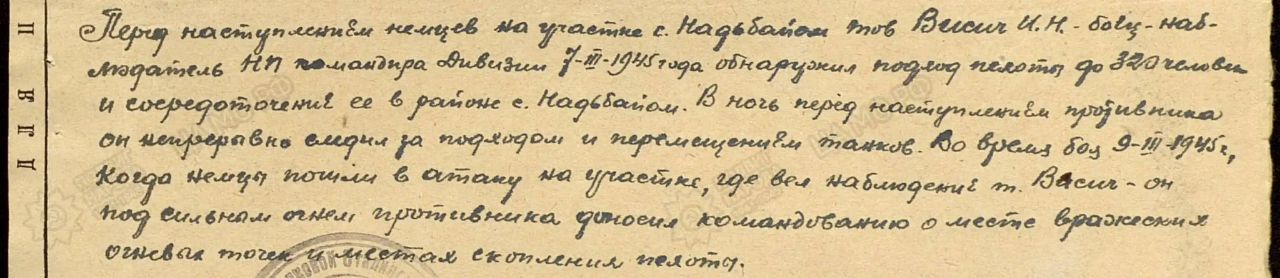 Перед наступлением немцев на участке с. Надьбайом тов Висич И.Н. - боец-наб-
людатель НП командира Дивизии 7-III-1945 года обнаружил подход пехоты до 320 человек
и сосредоточение ее в районе с. Надьбайом. В ночь перед наступлением противника
он непрерывно следил за подходом и перемещением танков. Во время боя 9-III-1945 г,
когда немцы пошли в атаку на участке, где вел наблюдение т. Висич - он
под сильным огнем противника доносил командованию о месте вражеских
огневых точек и местах скопления пехоты.